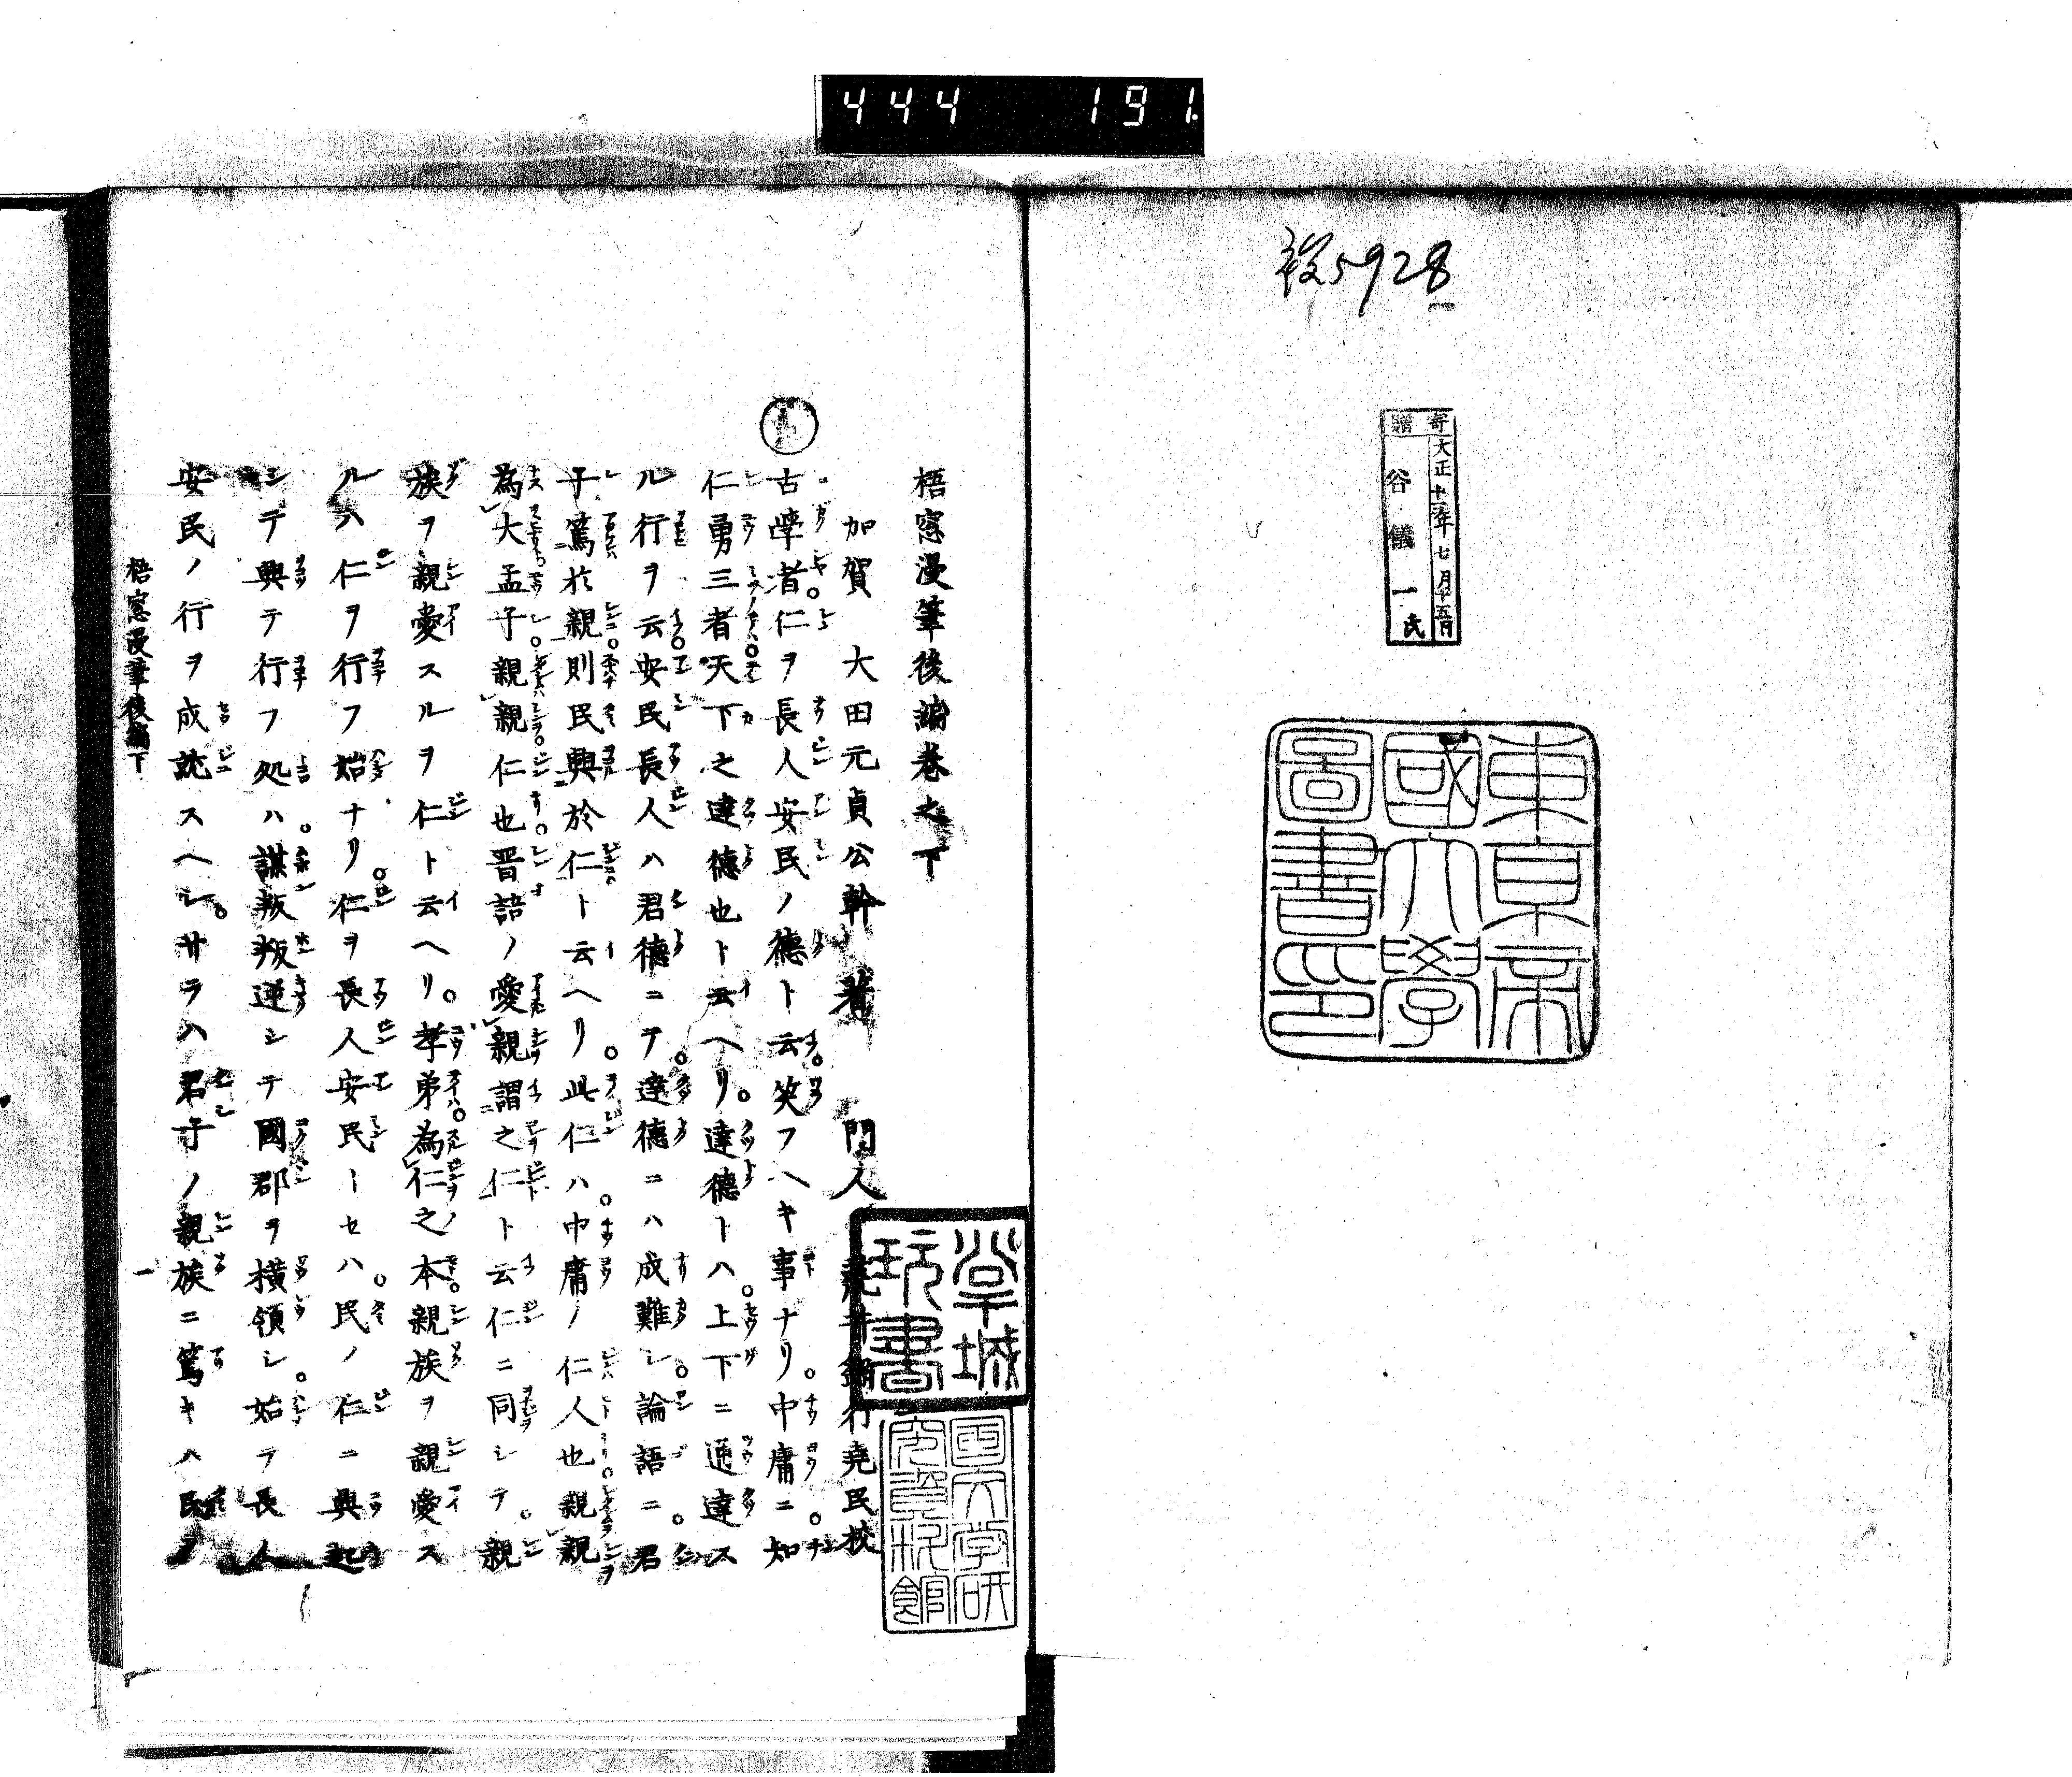 444 191
5928
寄贈
大正十五年七月十五日
谷儀一氏
東京帝
國大學
圖書印
梧窓漫筆後編巻之下
加賀 大田元貞公幹 著 門人 堯民校
掌城
玩書
国文学研
究資料館
古學者。仁ヲ長人安民ノ德ト云。笑フヘキ事ナリ。中庸ニ。知
仁勇三者天下之達德也ト云ヘリ。達德トハ。上下ニ通達ス
ル行ヲ云。安民長人ハ君德ニテ。達德ニハ成難シ。論語ニ。君
子篤於親。則民興於仁ト云ヘリ。此仁ハ。中庸ノ仁人也。親親
為大。孟子。親親。仁也。晋語ノ愛親謂之仁ト云仁ニ同シテ。親
族ヲ親愛スルヲ仁ト云ヘリ。孝弟為仁之本。親族ヲ親愛ス
ルハ仁ヲ行フ始ナリ。仁ヲ長人安民トセハ。民ノ仁ニ興起
シテ興テ行フ処ハ。謀叛叛逆シテ國郡ヲ橫領シ。始テ長人
安民ノ行ヲ成就スヘシ。サラハ君子ノ親族ニ篤キハ民ヲ
梧窓漫筆後編下
一